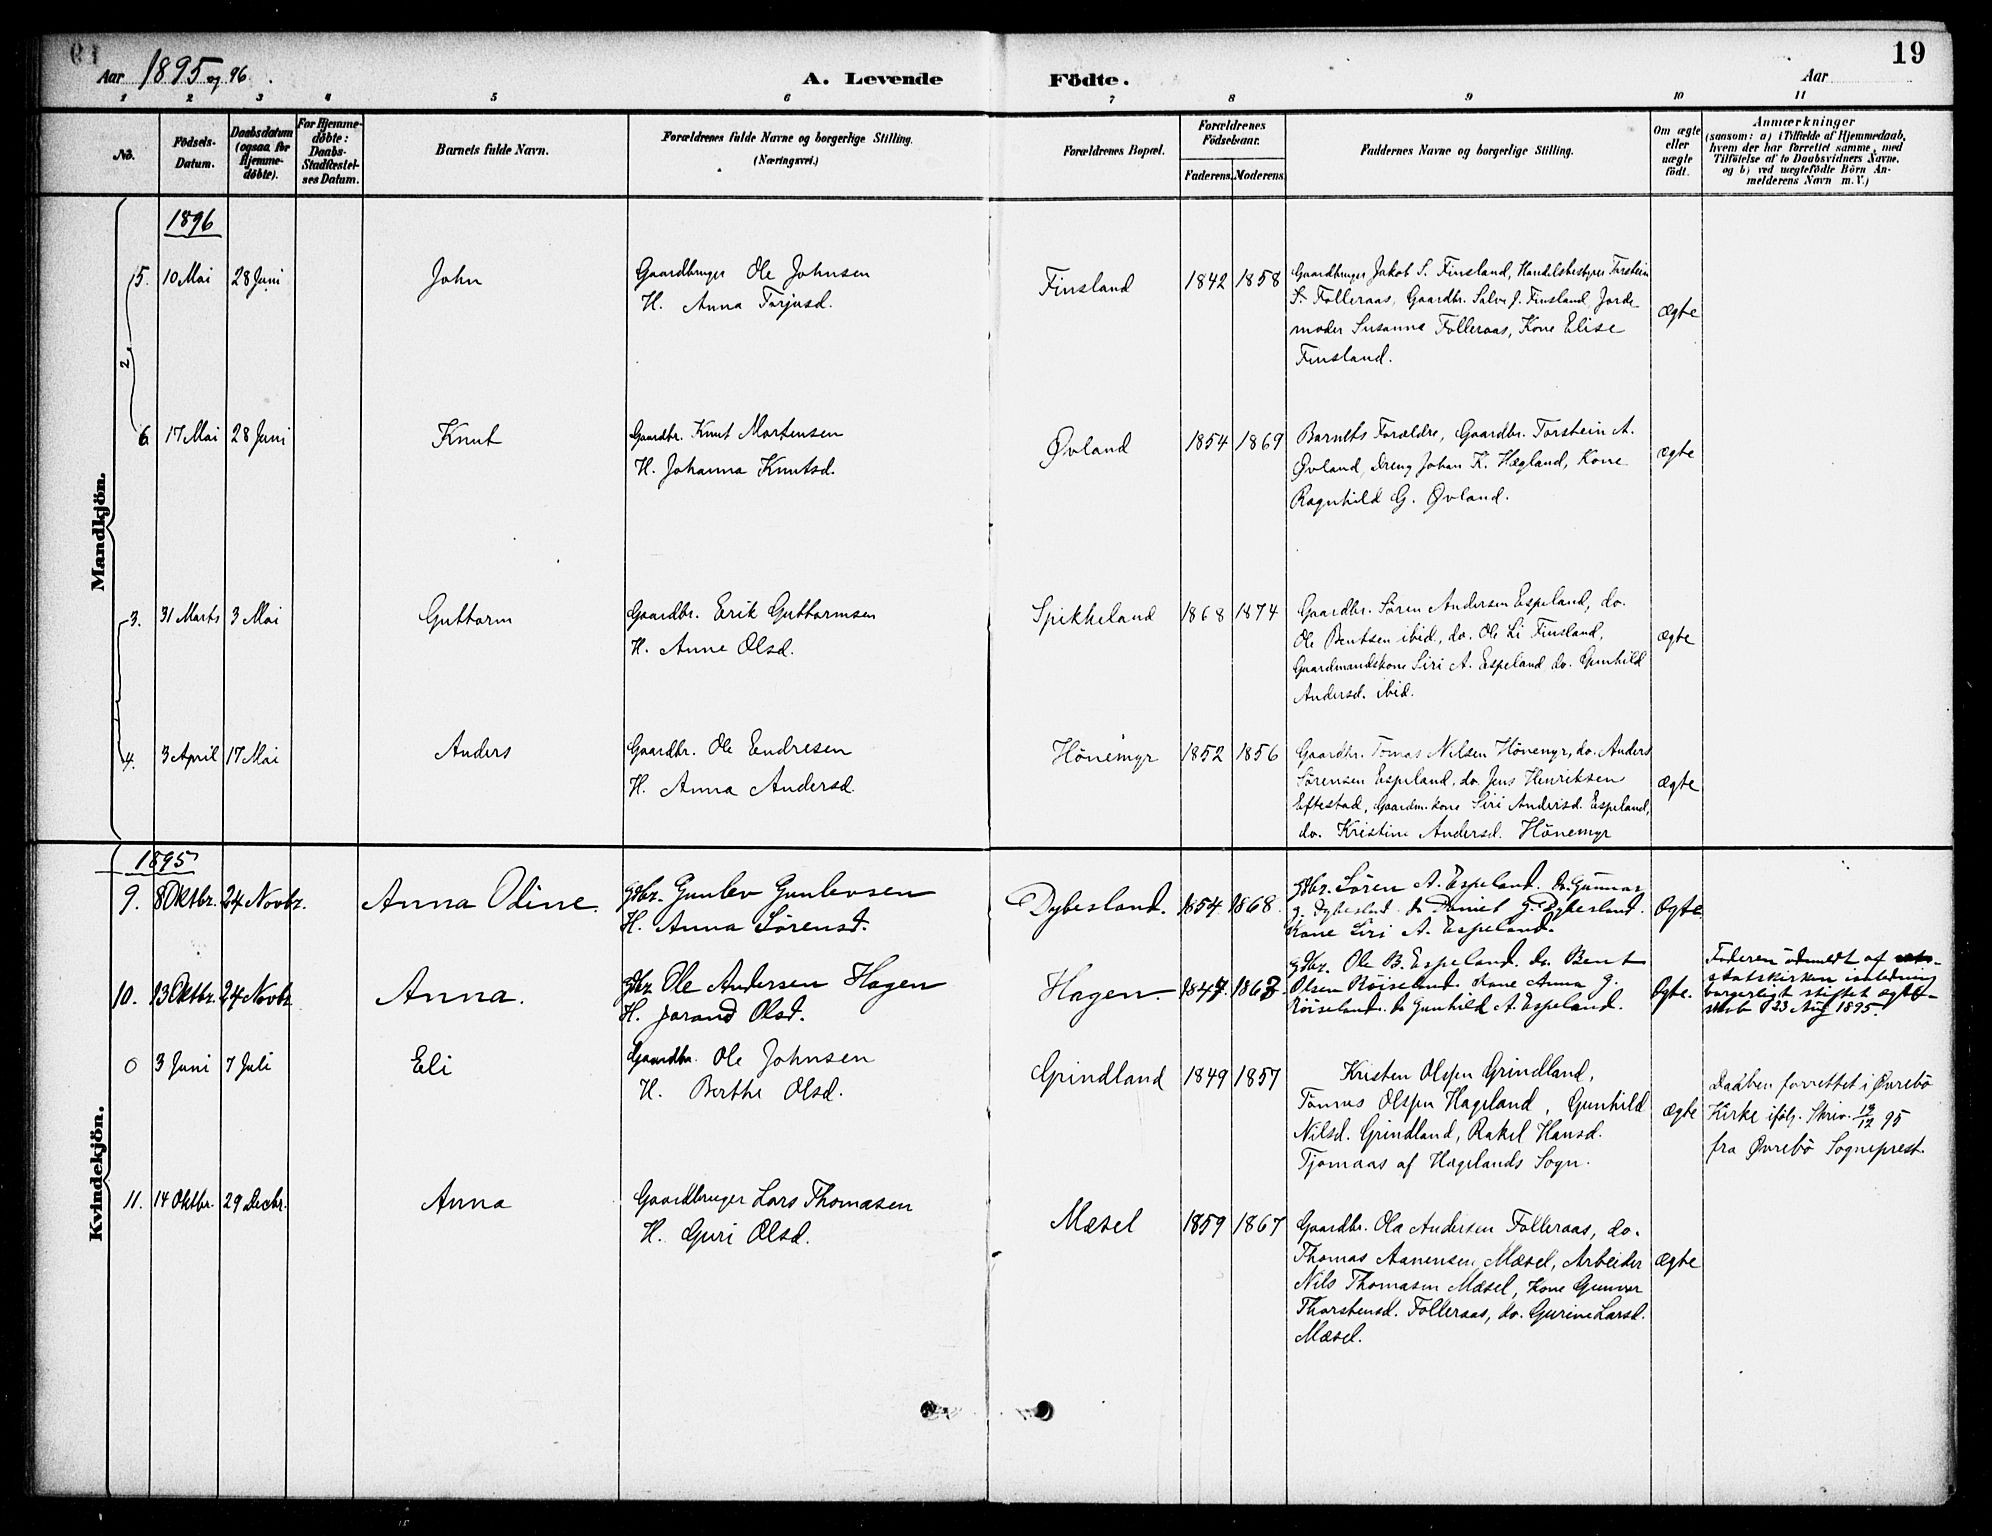 Aar 1895 og 96.
A. Levende Födte.
Aar
19
1 2 3 4 5 6 7 8 9 10 11
No.
Födsels-Datum.
Daabsdatum (ogsaa for Hjemme-döbte).
For Hjemme-döbte: Daabs-Stadfæstel-ses Datum.
Barnets fulde Navn.
Forældrenes fulde Navne og borgerlige Stilling. (Næringsvei.)
Forældrenes Bopæl.
Forældrenes Födselsaar.
Faderens. Moderens.
Faddernes Navne og borgerlige Stilling.
Om ægte eller uægte födt.
Anmærkninger
(saasom: a) i Tilfælde af Hjemmedaab,
hvem der har forrettet samme, med
Tilföielse af to Daabsvidners Navne,
og b) ved uægtefödte Börn An-
melderens Navn m. V.)
Mandkjön.
1896
2
5. 10 Mai 28 Juni John
Gaardbruger Ole Johnsen
H. Anna Tarjusd.
Finsland 1842 1858
Gaardbruger Jakob S. Finsland, Handelsbestyrer Torstein
S. Folleraas, Gaardbr. Salve J. Finsland, Jorde-
moder Susanne Folleraas, Kone Elise
Finsland.
ægte
6. 17 Mai 28 Juni Knut
Gaardbr. Knut Mortensen
H. Johanna Knutsd.
Øvland 1854 1869
Barnets Forældre, Gaardbr. Torstein A.
Øvland, Dreng Johan K. Hægland, Kone
Ragnhild G. Øvland.
ægte
3. 31 Marts 3 Mai Guttorm
Gaardbr. Erik Guttormsen
H. Anne Olsd.
Spikkeland 1868 1874
Gaardbr. Sören Andersen Espeland, do.
Ole Bentsen ibid, do. Ole Li Finsland,
Gaardmandskone Siri A. Espeland do. Gunhild
Andersd. ibid.
ægte
4. 3 April 17 Mai Anders
Gaardbr. Ole Endresen
H. Anna Andersd.
Hönemyr 1852 1856
Gaardbr. Tomas Nilsen Hönemyr, do. Anders
Sörensen Espeland, do. Jens Henriksen
Eftestad, Gaardm.kone Siri Andersd. Espeland,
do. Kristine Andersd. Hönemyr
ægte
Kvindekjön.
1895
9. 8 Oktbr. 24 Novbr. Anna Odine.
Gdbr. Gunlev Gunlevsen
H. Anna Sörensd.
Dybesland. 1854 1868.
Gdbr. Sören A. Espeland. do. Gunnar
G. Dybesland. do Daniel G. Dybesland.
Kone Siri A. Espeland.
Ægte.
10. 13 Oktbr. 24 Novbr Anna.
Gdbr Ole Andersen Hagen
H. Jorand Olsd.
Hagen. 1847. 1863.
Gdbr. Ole B. Espeland. do. Bent
Olsen Röiseland. Kone Anna G.
Röiseland. do Gunhild A. Espeland.
Ægte.
Faderen udmeldt af
statskirken
borgerligt stiftet ægte-
skab 23 Aug 1895.
0 3 Juni 7 Juli Eli
Gaardbr. Ole Johnsen
H. Berthe Olsd.
Grindland 1849 1857
Kristen Olsen Grindland,
Tönnes Olsen Hageland, Gunhild
Nilsd. Grindland, Rakel Hansd.
Tjomaas af Hægelands Sogn.
ægte
Daaben forrettet i Øvrebö
Kirke ifölg. Skriv. 19/12 95
fra Øvrebö Sogneprest.
11. 14 Oktbr. 29 Decbr. Anna
Gaardbruger Lars Thomasen
H. Guri Olsd.
Mæsel 1859 1867
Gaardbr. Ola Andersen Folleraas, do.
Thomas Aanensen Mæsel, Arbeider
Nils Thomasen Mæsel, Kone Gunvor
Thorstensd. Folleraas, do. Gurine Larsd.
Mæsel.
ægte